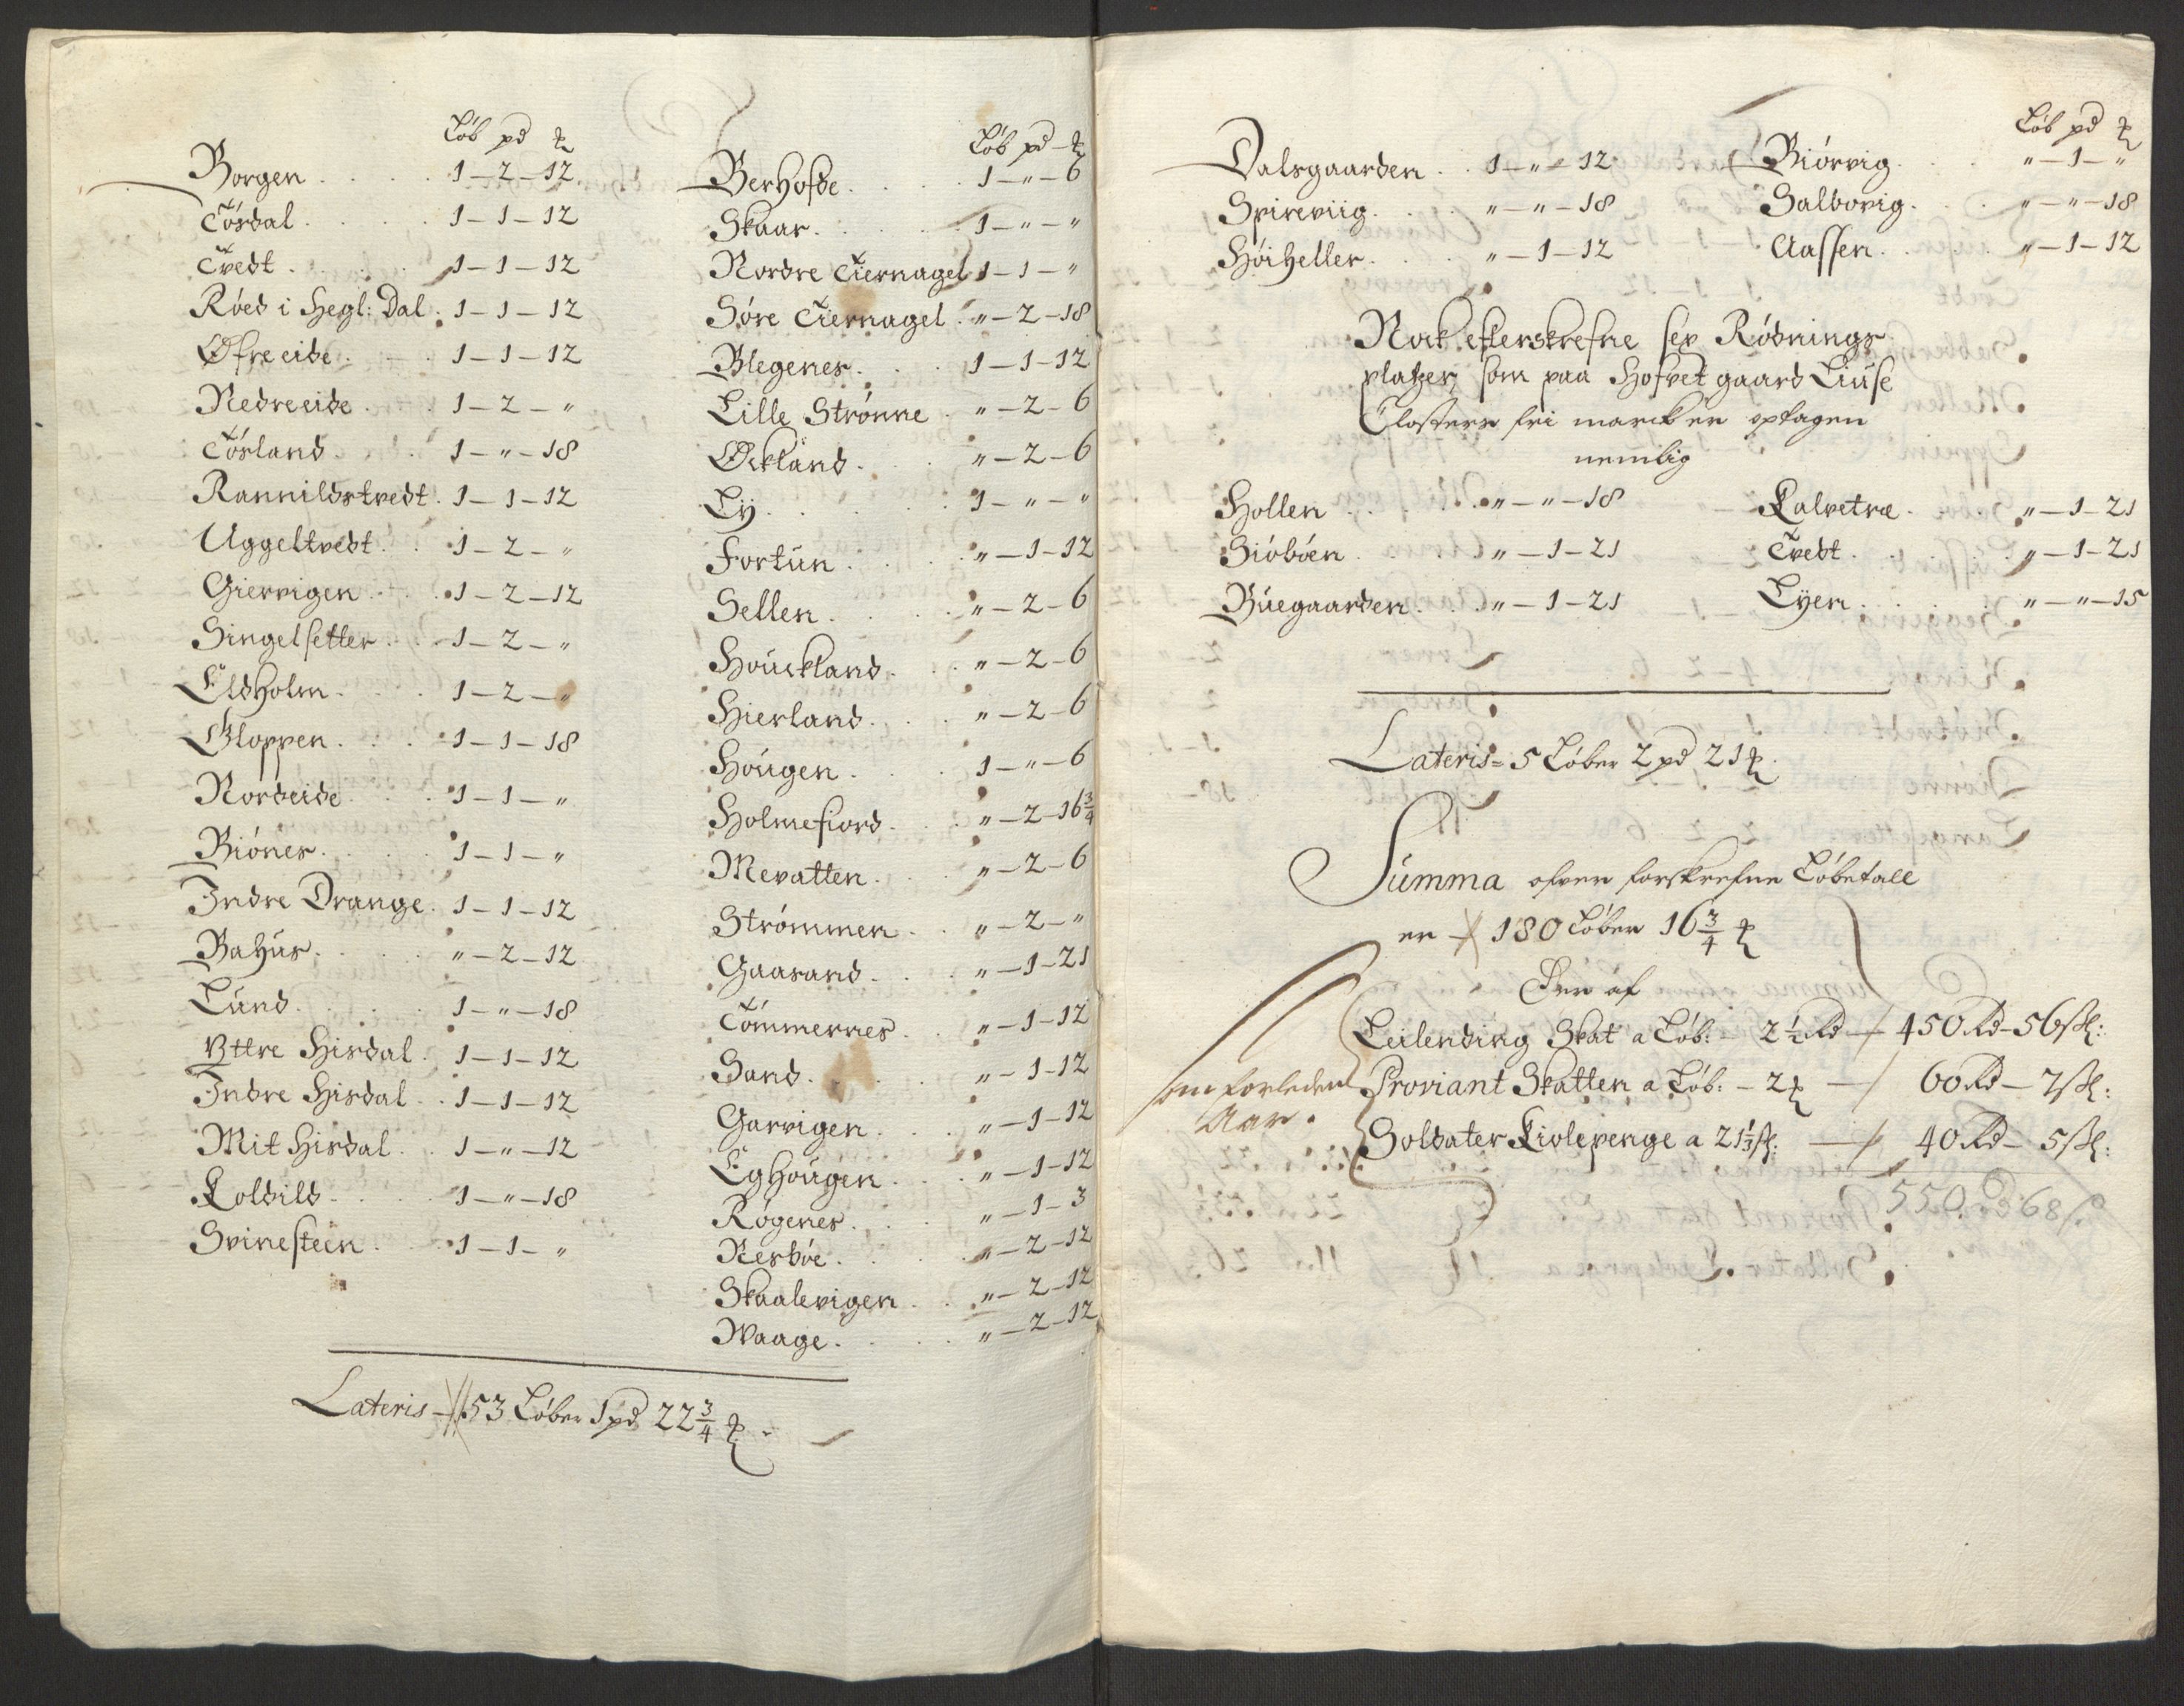 Løb pd ℔
Borgen . . . . 1 – 2 – 12
Tósdal . . . . 1 – 1 – 12
Tvedt . . . . 1 – 1 – 12
Róed i Hegl: Dal . 1 – 1 – 12
Øfre eide . . . 1 – 1 – 12
Nedre eide . . . 1 – 2 – "
Tósland . . . 1 – " – 18
Rannildstvedt . 1 – 1 – 12
Uggeltvedt . . 1 – 2 – "
Giervigen . . . 1 – 2 – 12
Singelsetter . . 1 – 2 – "
Eldholm . . . 1 – 2 – "
Gloppen . . . 1 – 1 – 18
Nordeide . . . 1 – 1 – "
Biónes . . . . 1 – 1 – "
Indre Drange . 1 – 1 – 12
Bahús . . . . " – 2 – 12
Lúnd . . . . 1 – " – 18
Yttre Hisdal . 1 – 1 – 12
Indre Hisdal . . 1 – 1 – 12
Mit Hisdal . . 1 – " – 12
Koldild . . . . 1 – " – 18
Svinesteen . . . 1 – 1 – "
Løb pd ℔
Berhofde . . . . 1 – " – 6
Skaar . . . . 1 – " – "
Nordre Tiernagel 1 – 1 – "
Sóre Tiernagel . " – 2 – 18
Blegenes . . . 1 – 1 – 12
Lille Strónne . " – 2 – 6
Øckland . . . " – 2 – 6
Ly . . . . . 1 – " – "
Fortún . . . . " – 1 – 12
Sellen . . . . " – 2 – 6
Hoúckland . . . " – 2 – 6
Hierland . . . " – 2 – 6
Hóugen . . . . 1 – " – 6
Holmefiord . . . " – 2 – 16 3/4
Mevatten . . . " – 2 – 6
Strómmen . . " – 2 – "
Gaasand . . . " – 1 – 21
Tómmernes . . " – 1 – 12
Sand . . . . " – 1 – 12
Garvigen . . . " – 1 – 12
Eghóugen . . . " – 1 – 12
Rógenes . . . " – 1 – 3
Resbóe . . . . " – 2 – 12
Skaalevigen . . " – 2 – 12
Waage . . . . " – 2 – 12
Lateris – 53 Løber 1 pd 22 3/4 ℔ .
Løb pd ℔
Dalsgaarden . . 1 – " – 12 Biórvig . . . " – 1 – "
Spireviig . . . " – " – 18 Salbovig . . . " – " – 18
Høiheller . . . " – 1 – 12 Aassen . . . " – 1 – 12
Nock efterskrefne sex Rødnings
platzer, som paa Hofvet gaard Liuse
Closters fri marck er optagen
nemblig
Hollen . . . " – " – 18 Kalvetræ . . " – 1 – 21
Sióbóen . . . " – 1 – 21 Tvedt . . . " – 1 – 21
Búegaarden . . " – 1 – 21 Lyen . . . . " – " – 15
Lateris = 5 Løber 2 pd 21 ℔
Summa ofven forskrefne Løbetall
er – 180 Løber 16 3/4 ℔
Der af
Leilending Skat a Løb: – 2 1/2 Rd – 450 Rd – 56 ſk:
Proviant Skatten a Løb: – 2 ℔ – 60 Rd – 7 ſk:
Soldater Kiolepenge a 21 1/3 ſk: – 40 Rd – 5 ſk:
som forleden
Aar .
550 Rd 68 ſ